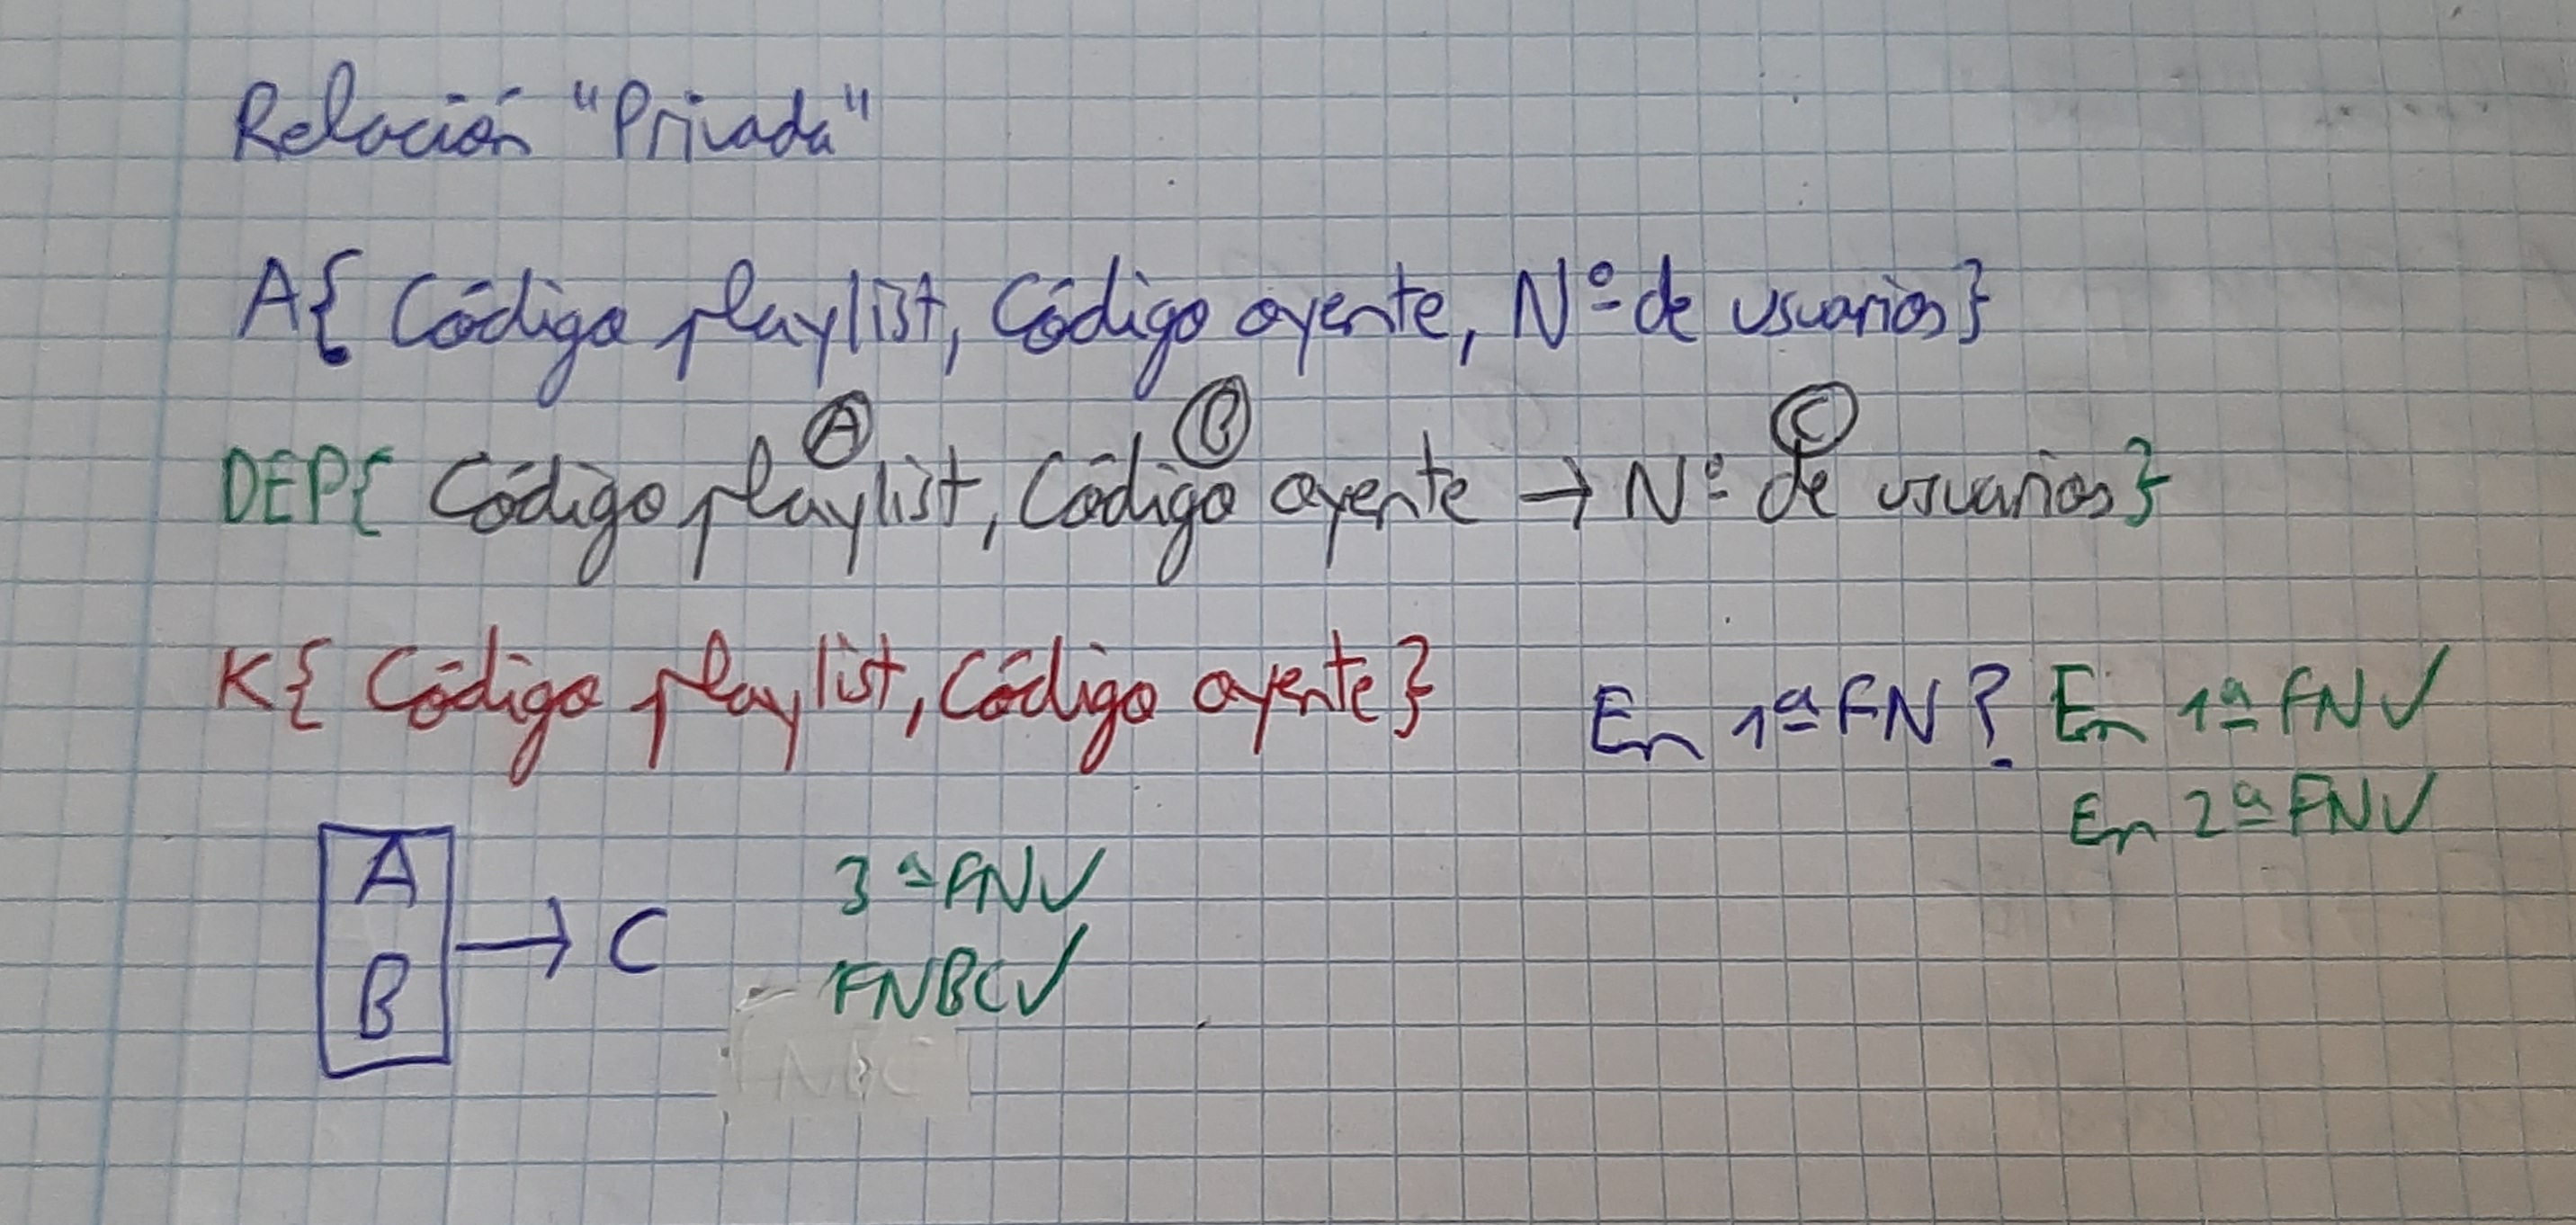 Relación "Privada"
A{ Código playlist, Código oyente, Nº de usuarios}
A B C
DEP{ Código playlist, Código oyente → Nº de usuarios}
K{ Código playlist, Código oyente} En 1ª FN? En 1ª FN✓
En 2ª FN✓
A
B → C
3ª FN✓
FNBC✓
FNBC